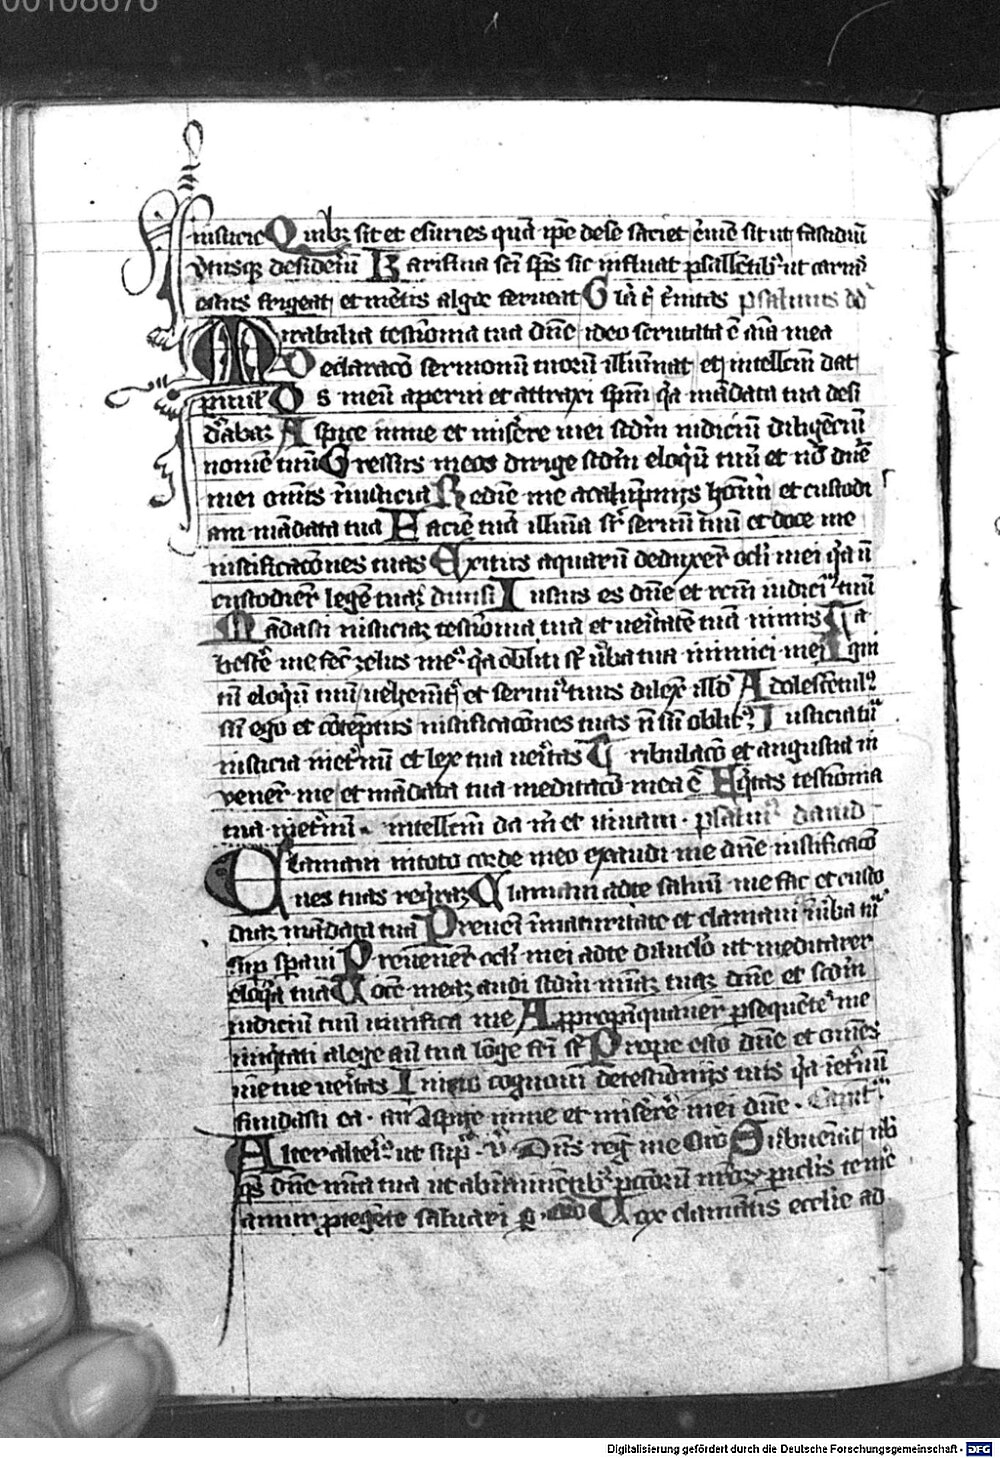 00108676
iusticie Quibꝫ sit et esuries quā ip̄e dese saciet ēiuē sit ut fastidiū
vtiusqꝫ desideriū Karistiua sc̄i sp̄s sic influat psallētibꝰ ut carnis
estus frigeat et mētis algor ferueat Gl̄ia psalmus dd
Mirabilia testiōnia tua dn̄e ideo scrutata ē aīa mea
Declaracō sermonū tuoꝝ illūinat et intellectū dat
puul Os meū aperui et attraxi sp̄m qꝛ mādata tua desi
d̓abaꝫ Aspice inme et misēre mei scd̄m iudiciū diligēciū
nomē tuū Gressus meos dirige scd̄m eloqū tuū et nō dn̄e
mei om̄is īiusticia Redīe me acalūpnijs hoīm et custodi
am mādata tua Faciē tuā illūina sr̄ seruū tuū et doce me
iustificacōnes tuas Exitus aquarū deduxer̄ ocl̄i mei qꝛ n̄
custodier̄ legē tuaꝫ diuisi Iustus es dn̄e et rc̄m iudiciū tuū
Mādasti iusticiaꝫ testiōnia tua et ueritatē tuā nimis Ta
bescē me fec̄ zelus meꝰ qꝛ obliti st̄ ūba tua inimici mei Igni
tū eloqū tuū uehemēt̄ et seruꝰ tuus dilex̄ illd̄ Adolescētulꝰ
sū ego et cōtēptus iustificacōnes tuas n̄ sū oblitꝰ Iusticia tua
iusticia inet̄nū et lex tua ueritas Tribulacō et angustia in
vener̄ me et mādata tua meditacō mea ē Eq̄tas testiōnia
tua inet̄nū intellectū da m̄ et uiuam psalmꝰ dauid
Clamaui intoto corde meo exaudi me dn̄e iustificacō
nes tuas reqraꝫ Clamaui adte saluū me fac et custo
diaꝫ mādata tua Preueni īmaturitate et clamaui ī ūba tua
sup̄ sp̄aui Preuener̄ ocl̄i mei adte diluclō ut meditarer
eloqa tua Vocē meaꝫ audi scd̄m miāꝫ tuaꝫ dn̄e et scd̄m
iudiciū tuū uiuifica me Appropīquauer̄ ꝑsequētes me
iniqtati alege aū tua lōge fc̄i st̄ Prope esto dn̄e et om̄es
uie tue ueritas Inicio cognoui detestiōnijs tuis qꝛ īet̄nū
fundasti ea aū Aspice inme et misēre mei dn̄e
Alter altei ut sup̄ v̄ Dn̄s reḡ me Subueniat nb̄
qs̄ dn̄e mīa tua ut abīminētibꝰ pccōrū piclis
amur ꝓtegēte saluari Vox clamātis ecclie ad
Digitalisierung gefördert durch die Deutsche Forschungsgemeinschaft - DFG